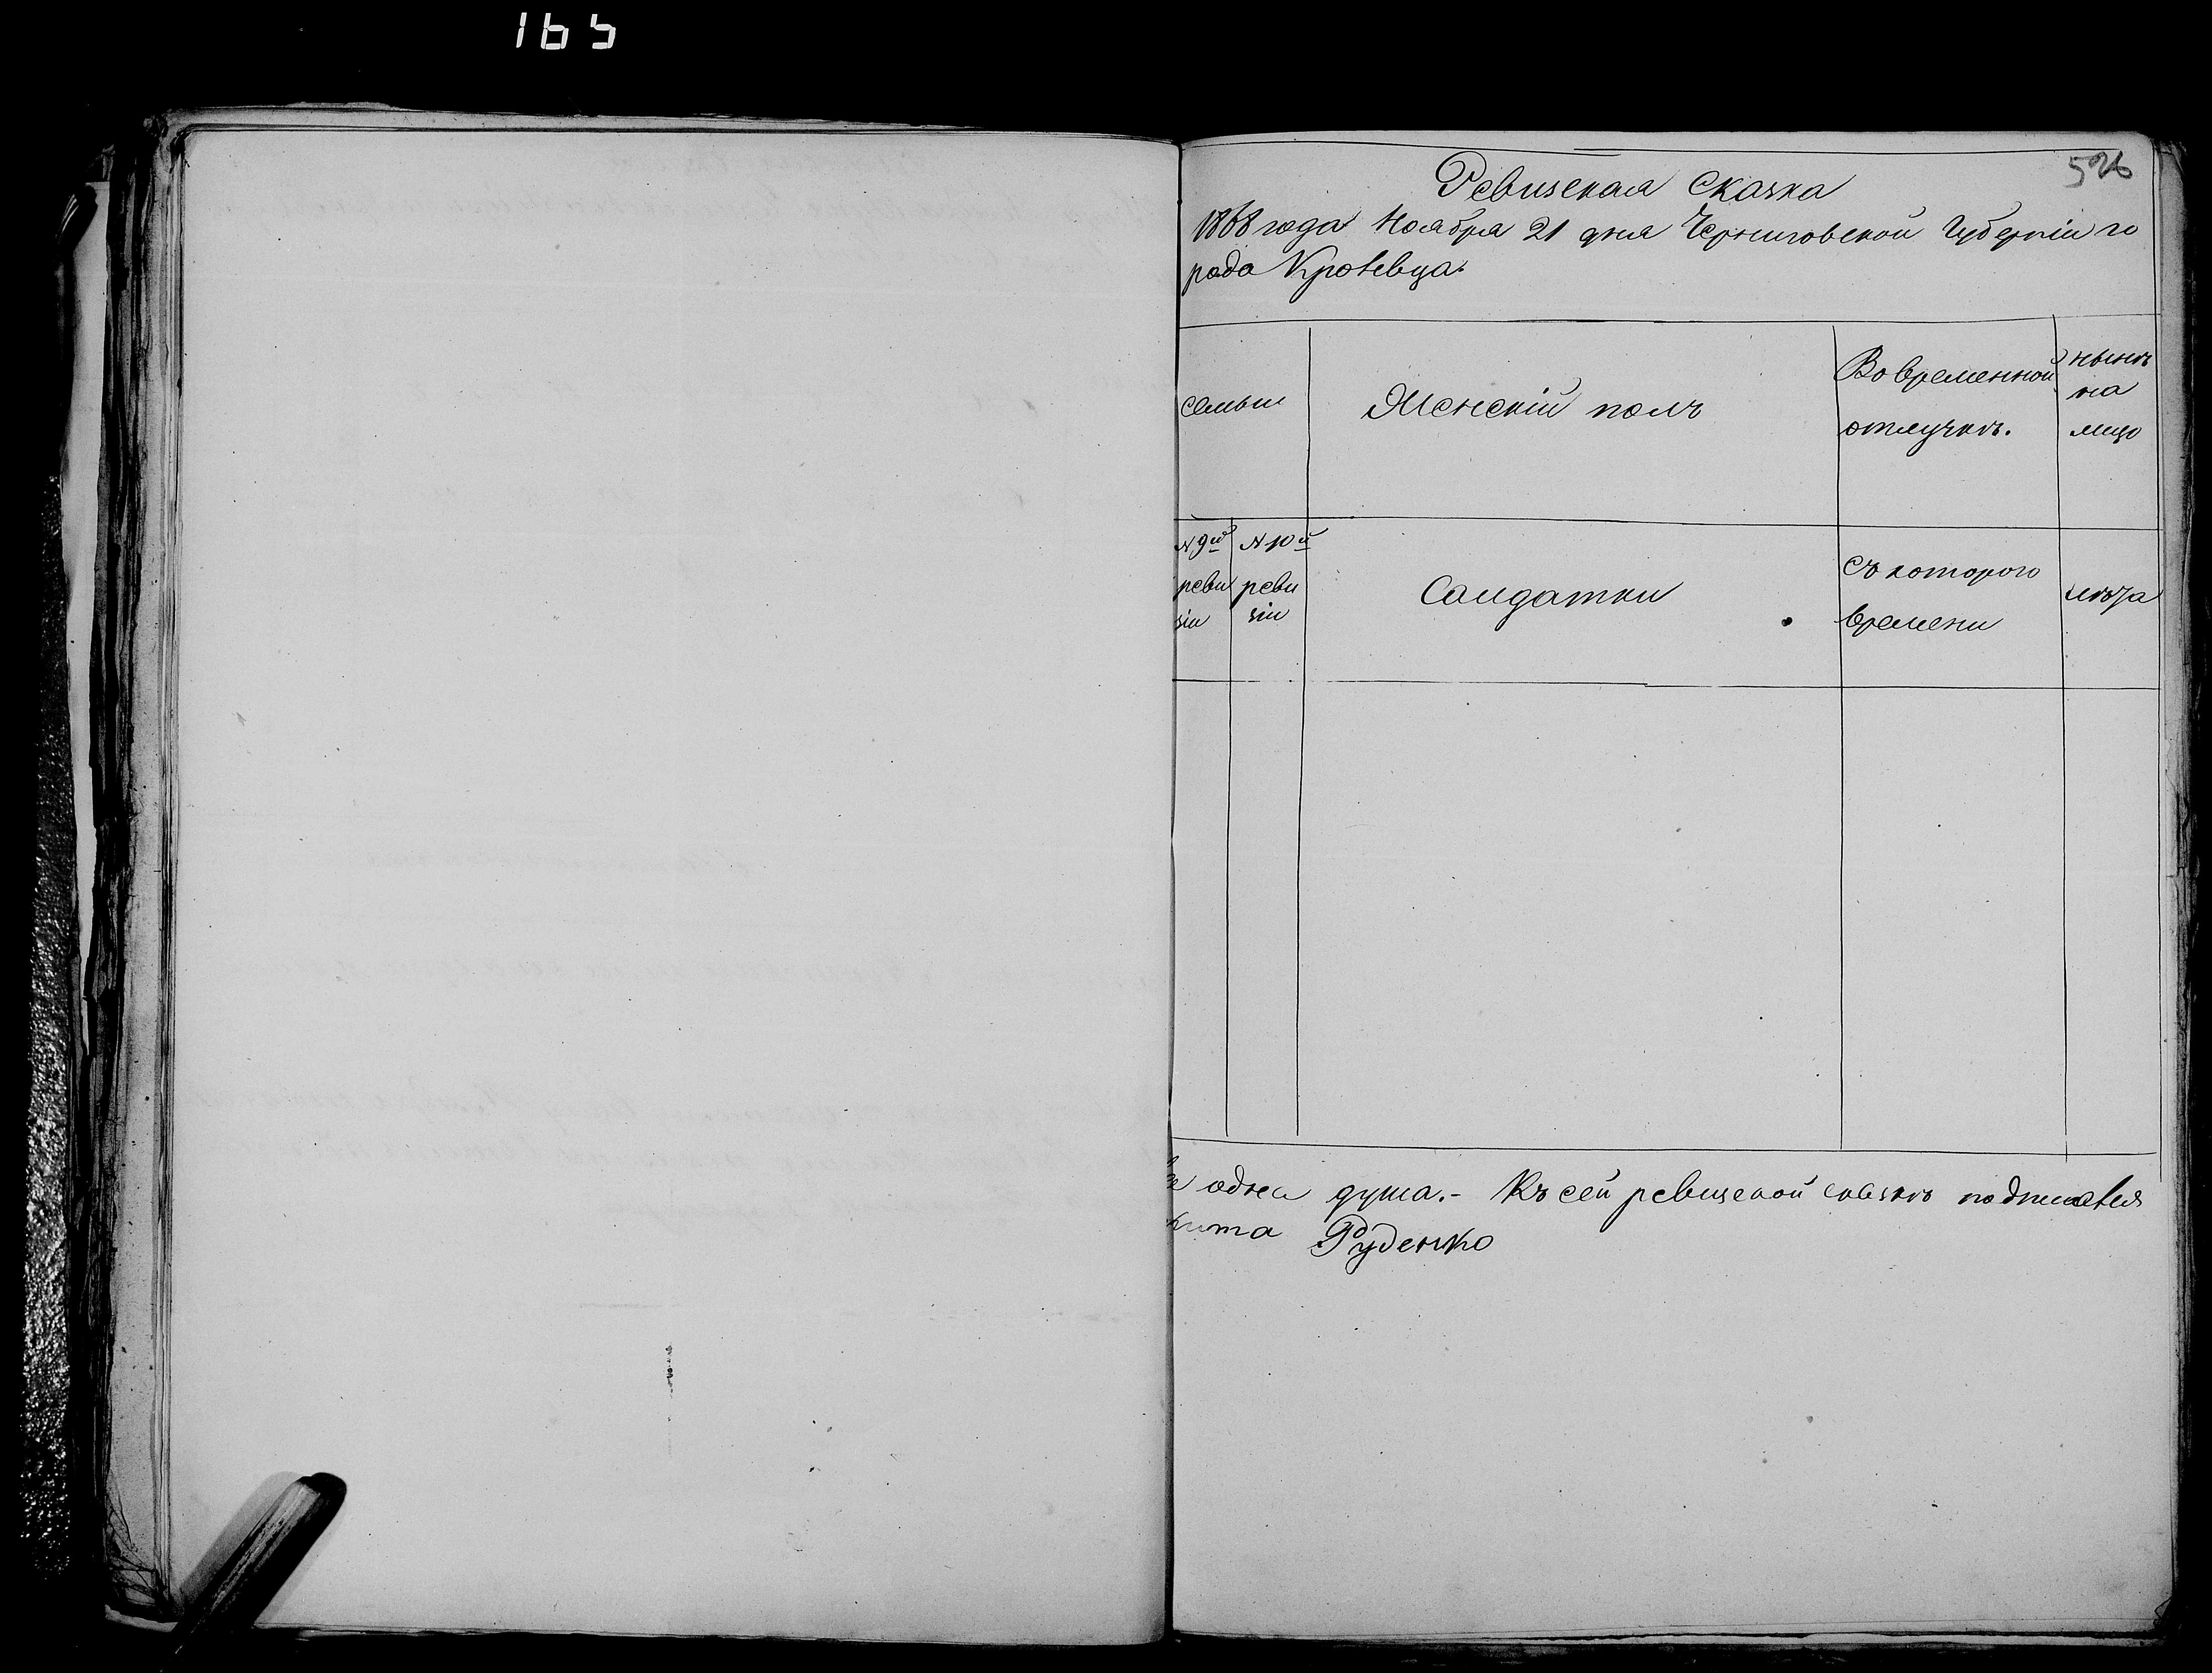 165
526
Ревизская Сказка
1868 года Ноября 21 дня Черниговской Губерніи го
рода Кролевца.
семьи
Женскій полъ
Во временной
отлучкѣ.
нынѣ
на
лицо
№ 9й
реви
зіи
№ 10й
реви
зіи
Салдатки
Съ которого
времени
лѣта
одна душа.- Къ сей ревизской сказкѣ подписался
кита Руденко